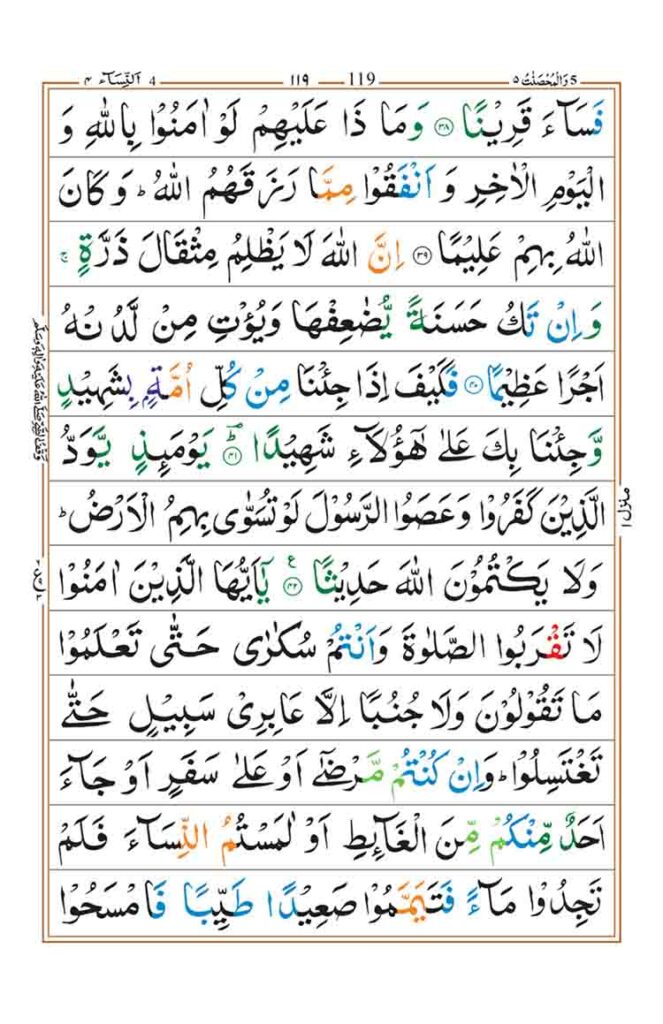 5 وَالْمُحْصَنٰتُ ۵ 119 ۱۱۹ 4 اَلنِّسَآء ۴
فَسَآءَ قَرِيْنًا ﴿۳۸﴾ وَمَا ذَا عَلَيْهِمْ لَوْ اٰمَنُوْا بِاللّٰهِ وَ
الْيَوْمِ الْاٰخِرِ وَ اَنْفَقُوْا مِمَّا رَزَقَهُمُ اللّٰهُ ؕ وَ كَانَ
اللّٰهُ بِهِمْ عَلِيْمًا ﴿۳۹﴾ اِنَّ اللّٰهَ لَا يَظْلِمُ مِثْقَالَ ذَرَّةٍ ۚ
وَ اِنْ تَكُ حَسَنَةً يُّضٰعِفْهَا وَيُؤْتِ مِنْ لَّدُنْهُ
اَجْرًا عَظِيْمًا ﴿۴۰﴾ فَكَيْفَ اِذَا جِئْنَا مِنْ كُلِّ اُمَّةٍۭ بِشَهِيْدٍ
وَّجِئْنَا بِكَ عَلٰى هٰٓؤُلَآءِ شَهِيْدًا ﴿۴۱﴾ؕ يَوْمَئِذٍ يَّوَدُّ
الَّذِيْنَ كَفَرُوْا وَعَصَوُا الرَّسُوْلَ لَوْ تُسَوّٰى بِهِمُ الْاَرْضُ ؕ
وَلَا يَكْتُمُوْنَ اللّٰهَ حَدِيْثًا ﴿۴۲﴾ ع يٰۤاَيُّهَا الَّذِيْنَ اٰمَنُوْا
لَا تَقْرَبُوا الصَّلٰوةَ وَاَنْتُمْ سُكٰرٰى حَتّٰى تَعْلَمُوْا
مَا تَقُوْلُوْنَ وَلَا جُنُبًا اِلَّا عَابِرِىْ سَبِيْلٍ حَتّٰى
تَغْتَسِلُوْا ؕ وَاِنْ كُنْتُمْ مَّرْضٰٓى اَوْ عَلٰى سَفَرٍ اَوْ جَآءَ
اَحَدٌ مِّنْكُمْ مِّنَ الْغَآئِطِ اَوْ لٰمَسْتُمُ النِّسَآءَ فَلَمْ
تَجِدُوْا مَآءً فَتَيَمَّمُوْا صَعِيْدًا طَيِّبًا فَامْسَحُوْا
منزل ۱